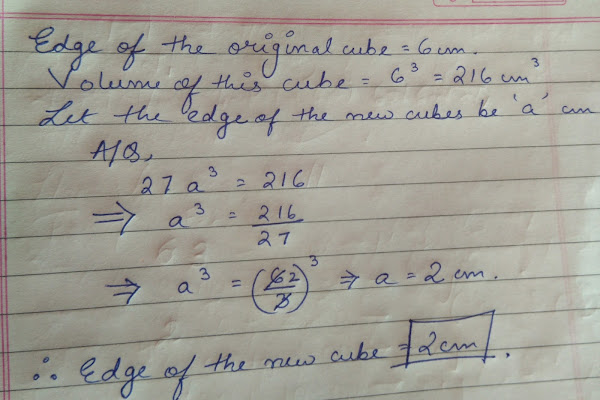 Edge of the original cube = 6 cm.
Volume of this cube = 6³ = 216 cm³
Let the edge of the new cubes be 'a' cm
A/Q,
27 a³ = 216
⇒ a³ = 216/27
⇒ a³ = (6̸2/3̸)³ ⇒ a = 2 cm.
∴ Edge of the new cube = 2cm.